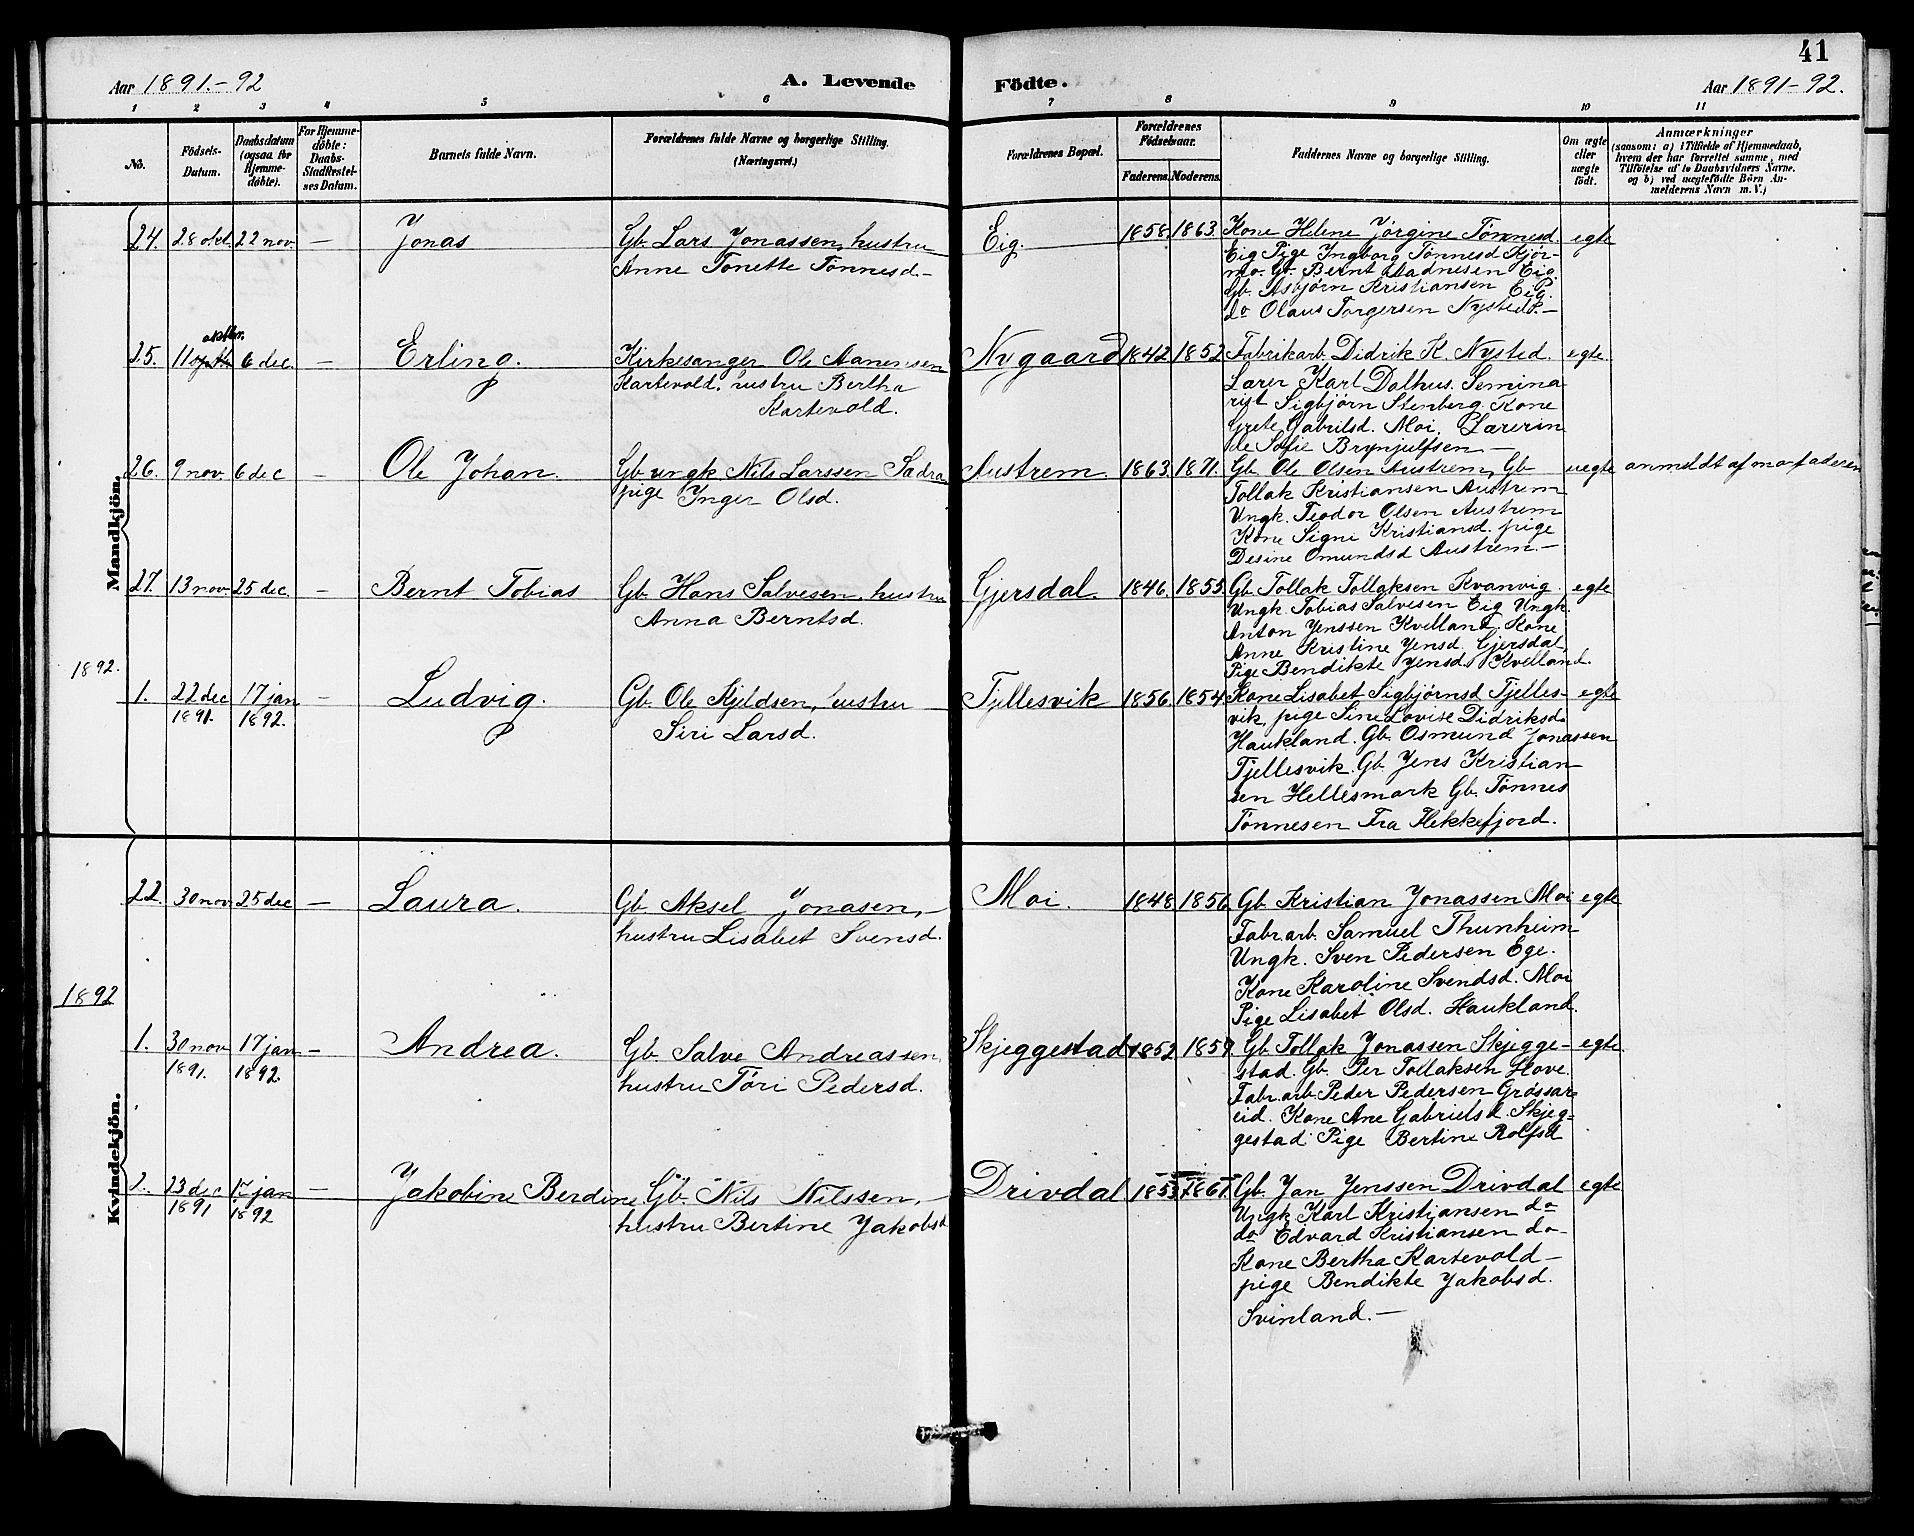 41
Aar 1891.-92
A. Levende
Födte.
Aar 1891-92.
1 2 3 4 5 6 7 8 9 10 11
No.
Födsels-Datum.
Daabsdatum (ogsaa for Hjemmedöbte).
For Hjemmedöbte: Daabs-Stadfæstelses Datum.
Barnets fulde Navn.
Forældrenes fulde Navne og borgerlige Stilling.
(Næringsvei.)
Forældrenes Bopæl.
Forældrenes Födselsaar.
Faderens. Moderens.
Faddernes Navne og borgerlige Stilling.
Om ægte eller uægte födt.
Anmærkninger
(saasom: a) i Tilfælde af Hjemmedaab,
hvem der har forrettet samme, med
Tilföielse af to Daabsvidners Navne.
og b) ved uægtefödte Börn An-
melderens Navn m. V.)
Mandkjön.
24. 28 okt. 22 nov. – Jonas
Gb. Lars Jonassen, hustru
Anne Tonette Tønnesd–
Eig. 1858. 1863.
Kone Helene Jørgine Tønnesd.
Eig Pige Ingborg Tønnesd Kjør-
mo. Gb. Bernt Aadnesen Eig.
Gb. Asbjørn Kristiansen Eig.
do Olaus Torgersen Nysted.–
egte
25. 11 septb. oktbr. 6 dec. – Erling.
Kirkesanger Ole Aanensen
Kartevold. hustru Bertha
Kartevold.
Nygaard 1842 1852
Fabrikarb. Didrik K. Nysted.
Lærer Karl Dalhus. Semina
rist Sigbjørn Stenberg. Kone
Grete Gabrilsd. Moi. Lærerin
de Sofie Brynjulfsen –
egte.
26. 9 nov. 6 dec – Ole Johan.
Gb ungk Nils Larssen Sadra
pige Inger Olsd.
Austrem 1863. 1871.
Gb. Ole Olsen Austrem, Gb
Tollak Kristiansen Austrem
Ungk. Teodor Olsen Austrem
Kone Signi Kristiansd. pige
Desine Omundsd Austrem.–
uegte anmeldt af morfaderen
27. 13 nov 25 dec. – Bernt Tobias
Gb. Hans Salvesen, hustru
Anna Berntsd.
Gjersdal. 1846. 1855.
Gb. Tollak Tollaksen Kvanvig
Ungk. Tobias Salvesen Eig Ungk.
Anton Jenssen Kvelland. Kone
Anne Kristine Jensd. Gjersdal
Pige Bendikte Jensd. Kvelland.
egte
1892.
1. 22 dec 1891. 17 jan 1892. – Ludvig.
Gb. Ole Kjeldsen, hustru
Siri Larsd.
Tjellesvik 1856. 1854.
Kone Lisabet Sigbjørnsd Tjelles-
vik, pige Sine Lovise Didriksd.
Haukland. Gb. Osmund Jonassen
Tjellesvik. Gb. Jens Kristian-
sen Hellesmark Gb. Tønnes
Tønnesen Fra Flekkefjord.
egte
Kvindekjön.
22. 30 nov. 25 dec – Laura.
Gb. Aksel Jonasen, –
hustru Lisabet Svensd.
Moi. 1848 1856.
Gb. Kristian Jonassen Moi
Fabr.arb. Samuel Thunheim
Ungk. Sven Pedersen Ege.
Kone Karoline Svendsd. Moi
Pige Lisabet Olsd. Haukland.
egte
1892
1. 30 nov 1891. 17 jan 1892. – Andrea.
Gb. Salve Andreassen,
hustru Tøri Pedersd.
Skjeggestad 1852 1859
Gb. Tollak Jonassen Skjegge-
stad. Gb. Per Tollaksen Hove.
Fabr.arb. Peder Pedersen Grøssar-
eid. Kone Ane Gabrielsd. Skjeg-
gestad Pige Bertine Rolfsd
egte.
2. 23 dec 1891 17 jan 1892 – Jakobine Berdine
Gb. Nils Nilssen, –
hustru Bertine Jakobsd
Drivdal 1853. 1867.
Gb. Jan Jenssen Drivdal
Ungk Karl Kristiansen do
do Edvard Kristiansen do
Kone Bertha Kartevold–
pige Bendikte Jakobsd.
Svinland.–
egte